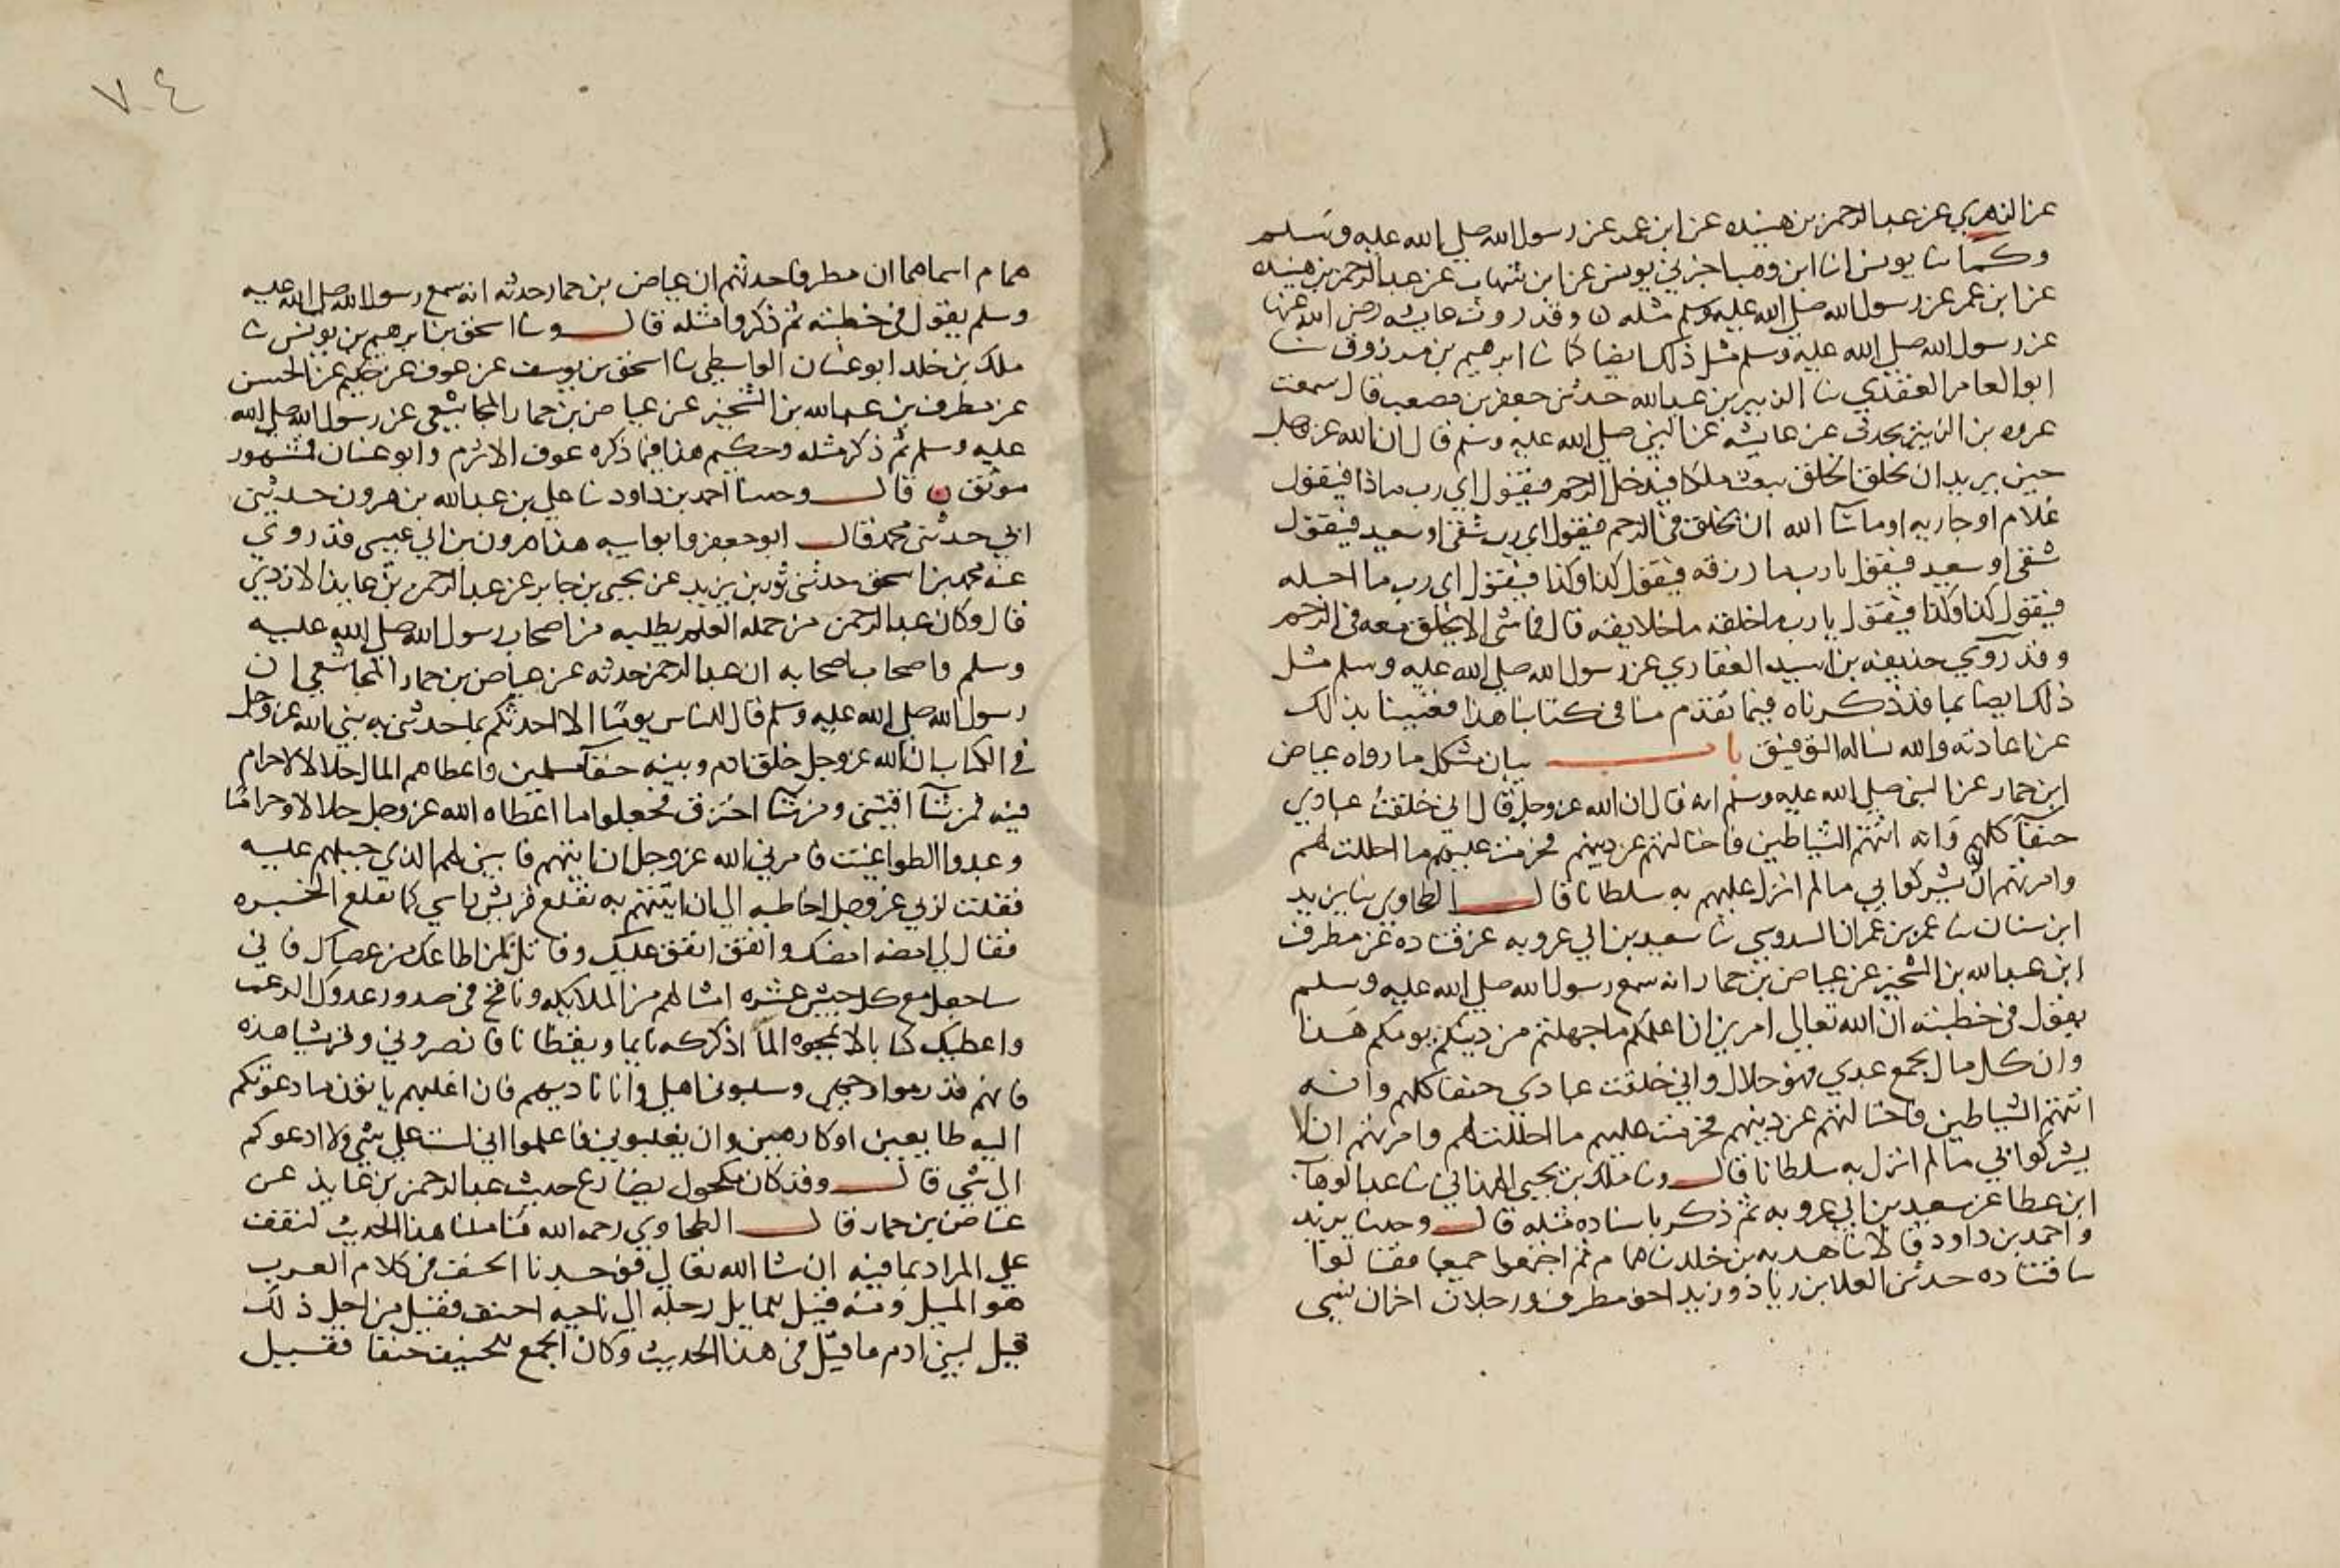 عن الزهري عن عبد الرحمن بن هنيده عن ابن عمر عن رسول الله صلي الله عليه وسلم
وكما ثنا يونس انا ابن وهب اخبرني يونس عن ابن شهاب عن عبد الرحمن بن هنيده
عن ابن عمر عن رسول الله صلي الله عليه وسلم مثله وقد روت عايشه رضي الله عنها
عن رسول الله صلي الله عليه وسلم مثل ذلك ايضا كما ثنا ابرهيم بن مرزوق ثنا
ابو العامر العقدي ثنا الزبير بن عبد الله حدثني جعفر بن مصعب قال سمعت
عروه بن الزبير يحدث عن عايشه عن النبي صلي الله عليه وسلم قال ان الله عز وجل
حين يريد ان يخلق الخلق يبعث ملكا فيدخل الرحم فيقول اي رب ماذا فيقول
غلام او جاريه او ما شا الله ان يخلق في الرحم فيقول اي رب شقي او سعيد فيقول
شقي او سعيد فيقول يا رب ما رزقه فيقول كذا وكذا فيقول اي رب ما اجله
فيقول كذا وكذا فيقول يا رب ما خلقه ما خلايقه قال فما شي الا يخلق معه في الرحم
وقد روي حذيفه بن اسيد الغفاري عن رسول الله صلي الله عليه وسلم مثل
ذلك ايضا بما قد ذكرناه فيما تقدم منا في كتابنا هذا فغنينا بذلك
عن اعادته والله نساله التوفيق باب بيان مشكل ما رواه عياض
ابن حمار عن النبي صلي الله عليه وسلم انه قال ان الله عز وجل قال اني خلقت عبادي
حنفا كلهم وانه اتتهم الشياطين فاجتالتهم عن دينهم فحرمت عليهم ما احللت لهم
وامرتهم ان يشركوا بي ما لم انزل عليهم به سلطانا قال الطحاوي ثنا يزيد
ابن سنان ثنا عمر بن عمران السدوسي ثنا سعيد بن ابي عروبه عن قتاده عن مطرف
ابن عبد الله بن الشخير عن عياض بن حمار انه سمع رسول الله صلي الله عليه وسلم
يقول في خطبته ان الله تعالي امرني ان اعلمكم ما جهلتم من دينكم يومكم هذا
وان كل مال الجمع عبدي فهو حلال واني خلقت عبادي حنفا كلهم وانه
اتتهم الشياطين فاجتالتهم عن دينهم فحرمت عليهم ما احللت لهم وامرتهم ان لا
يشركوا بي ما لم انزل به سلطانا قال وثنا ملك بن يحيي الهمداني ثنا عبد الوهاب
ابن عطا عن سعيد بن ابي عروبه ثم ذكر باسناده مثله قال وحدثنا يزيد
واحمد بن داود قالا ثنا هدبه بن خلد ثنا همام ثم اجتمعوا جميعا فقالوا
ثنا قتاده حدثني العلا بن زياد ويزيد اخو مطرف ورجلان اخران نسي
همام اسماهما ان مطرفا حدثهم ان عياض بن حمار حدثه انه سمع رسول الله صلي الله عليه
وسلم يقول في خطبته ثم ذكروا مثله قال وثنا اسحق بن ابرهيم بن يونس ثنا
ملك بن خلد ابو غسان الواسطي ثنا اسحق بن يوسف عن عوف عن حكيم عن الحسن
عن مطرف بن عبد الله بن الشخير عن عياض بن حمار المجاشعي عن رسول الله صلي الله
عليه وسلم ثم ذكر مثله وحكيم هذا فيما ذكره عوف الاثرم وابو غسان مشهور
موثق قال وحدثنا احمد بن داود ثنا علي بن عبد الله بن هرون حدثني
ابي حدثني محمد قال ابو جعفر وابو ابيه هذا هرون بن ابي عيسي قد روي
عنه محمد بن اسحق حدثني ثور بن يزيد عن يحيي بن جابر عن عبد الرحمن بن عايذ الازدي
قال وكان عبد الرحمن من حمله العلم يطلبه من اصحاب رسول الله صلي الله عليه
وسلم واصحاب اصحابه ان عبد الرحمن حدثه عن عياض بن حمار المجاشعي ان
رسول الله صلي الله عليه وسلم قال للناس يوما الا احدثكم بما حدثني به ربي الله عز وجل
في الكتاب ان الله عز وجل خلق ادم وبنيه حنفا مسلمين واعطاهم المال حلالا لا حرام
فيه فمن شا اقتني ومن شا احترف فجعلوا مما اعطاه الله عز وجل حلالا وحراما
وعبدوا الطواغيت فامرني الله عز وجل ان اتيهم فابين لهم الذي جبلهم عليه
فقلت لربي عز وجل اخاطبه اني ان اتيتهم به تقلع قريش راسي كما تقلع الخبزه
فقال لي امضه امضك وانفق انفق عليك وقاتل بمن اطاعك من عصاك فاني
ساجعل مع كل جيش عشره امثالهم من الملايكه ونافخ في صدور عدوك الرعب
واعطيك كتابا لا يمحوه الما اذكركه نايما ويقظانا فانصروني وقريشا هذه
فانهم قد دموا وجهي وسلبوني اهلي وانا ناديهم فان اغلبهم ياتون ما دعوتكم
اليه طايعين او كارهين وان يغلبوني فاعلموا اني لست علي شي ولا ادعوكم
الي شي قال وقد كان مكحول يضارع حديث عبد الرحمن بن عايذ عن
عياض بن حمار قال الطحاوي رحمه الله فتاملنا هذا الحديث لنقف
علي المراد بما فيه ان شا الله تعالي فوجدنا الحنف في كلام العرب
هو الميل ومنه قيل لمن يمايل رجله الي ناحيه احنف فقيل من اجل ذلك
قيل لبني ادم ما قيل في هذا الحديث وكان الجمع للحنيف حنفا فقيل